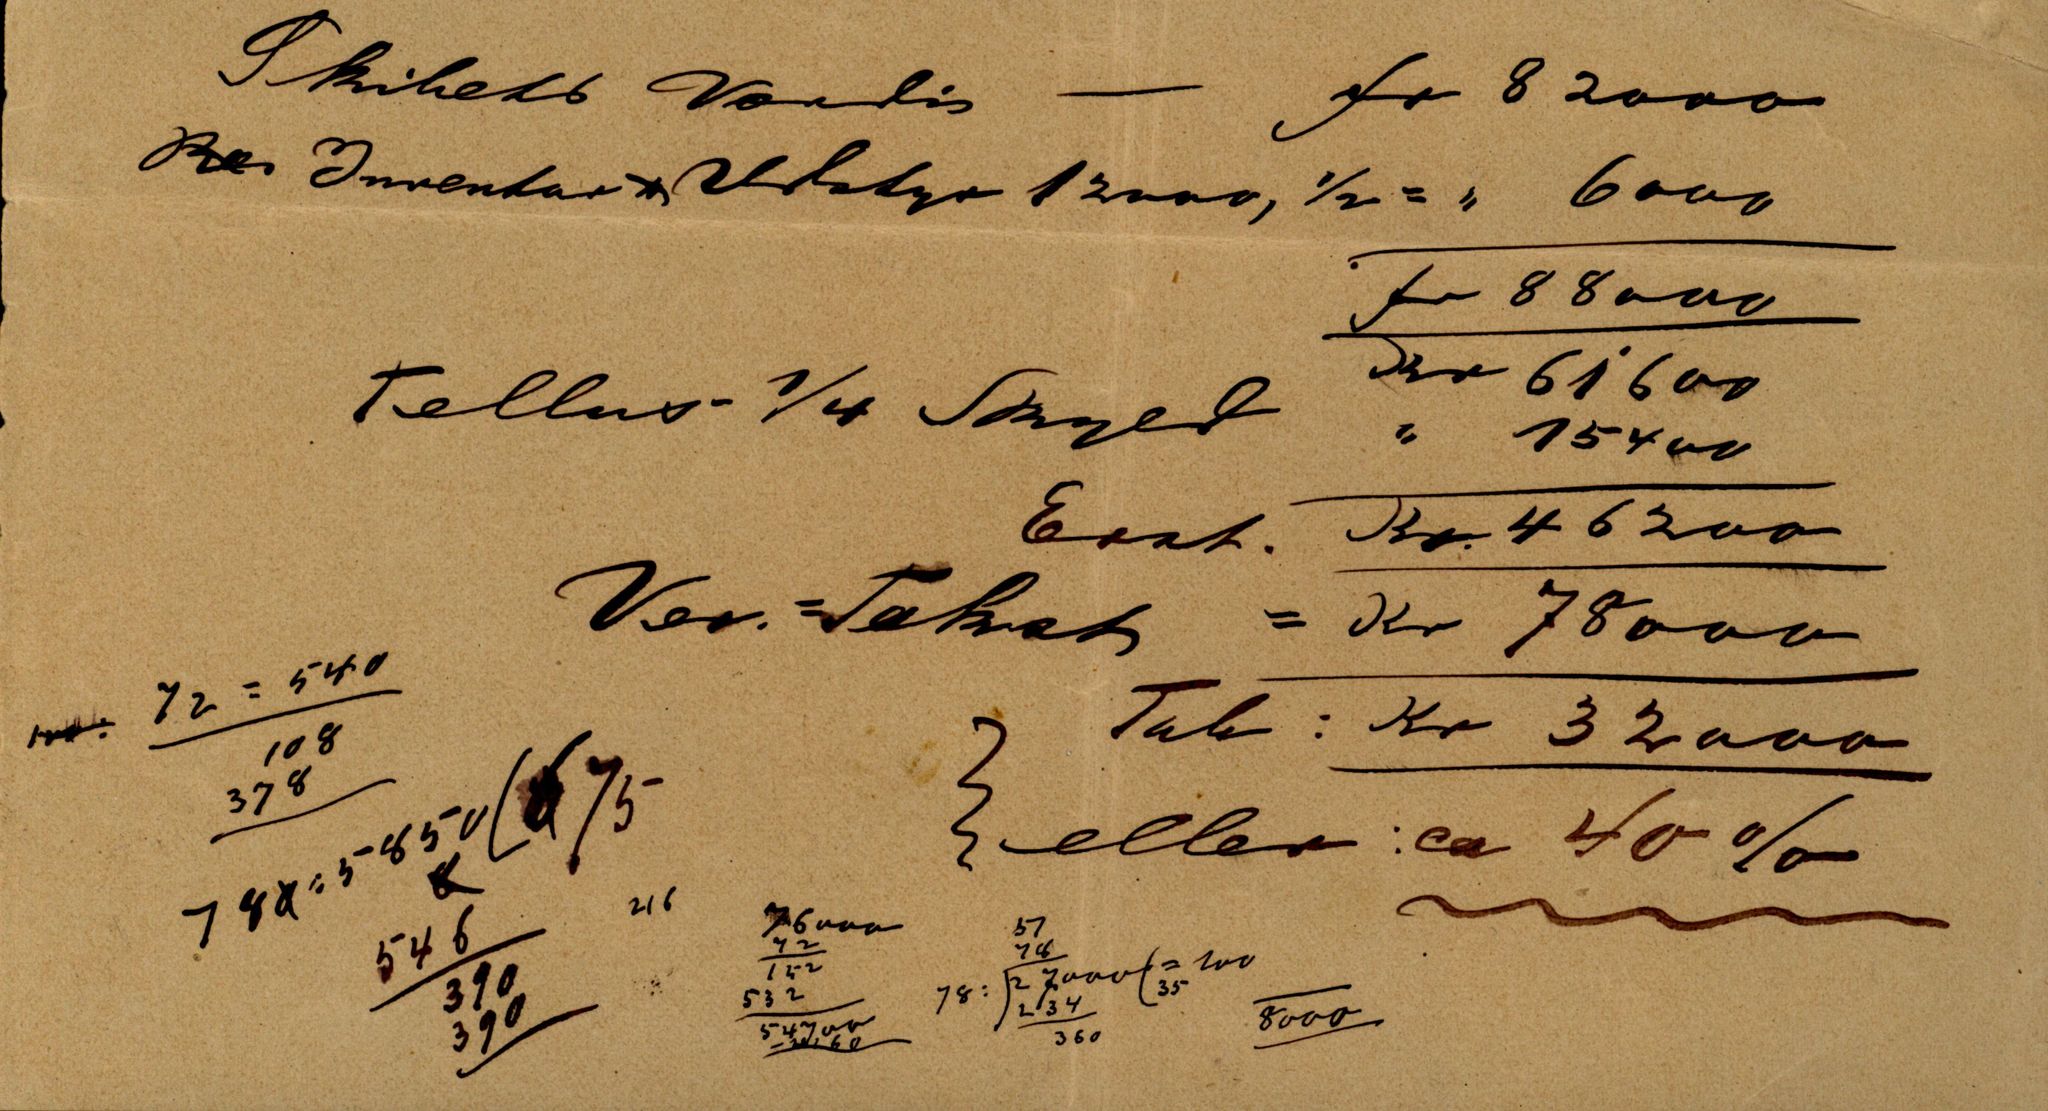 Skibets Værdi — fr 82000
Inventar & Udstyr 12000, 1/2 = " 6000
fr 88000
Kr 61600
Tellus 1/4 Skyld " 15400
Erst. Kr. 46200
Ver. = Takst = Kr 78000
Tab: Kr 32000
eller: ca 40%
72 = 540
108
378
78 = 5850 ( 75
546
390
390
216
76000
72
152
532
54700
57
78
78: 27000 ( = 100
35
234
360
8000